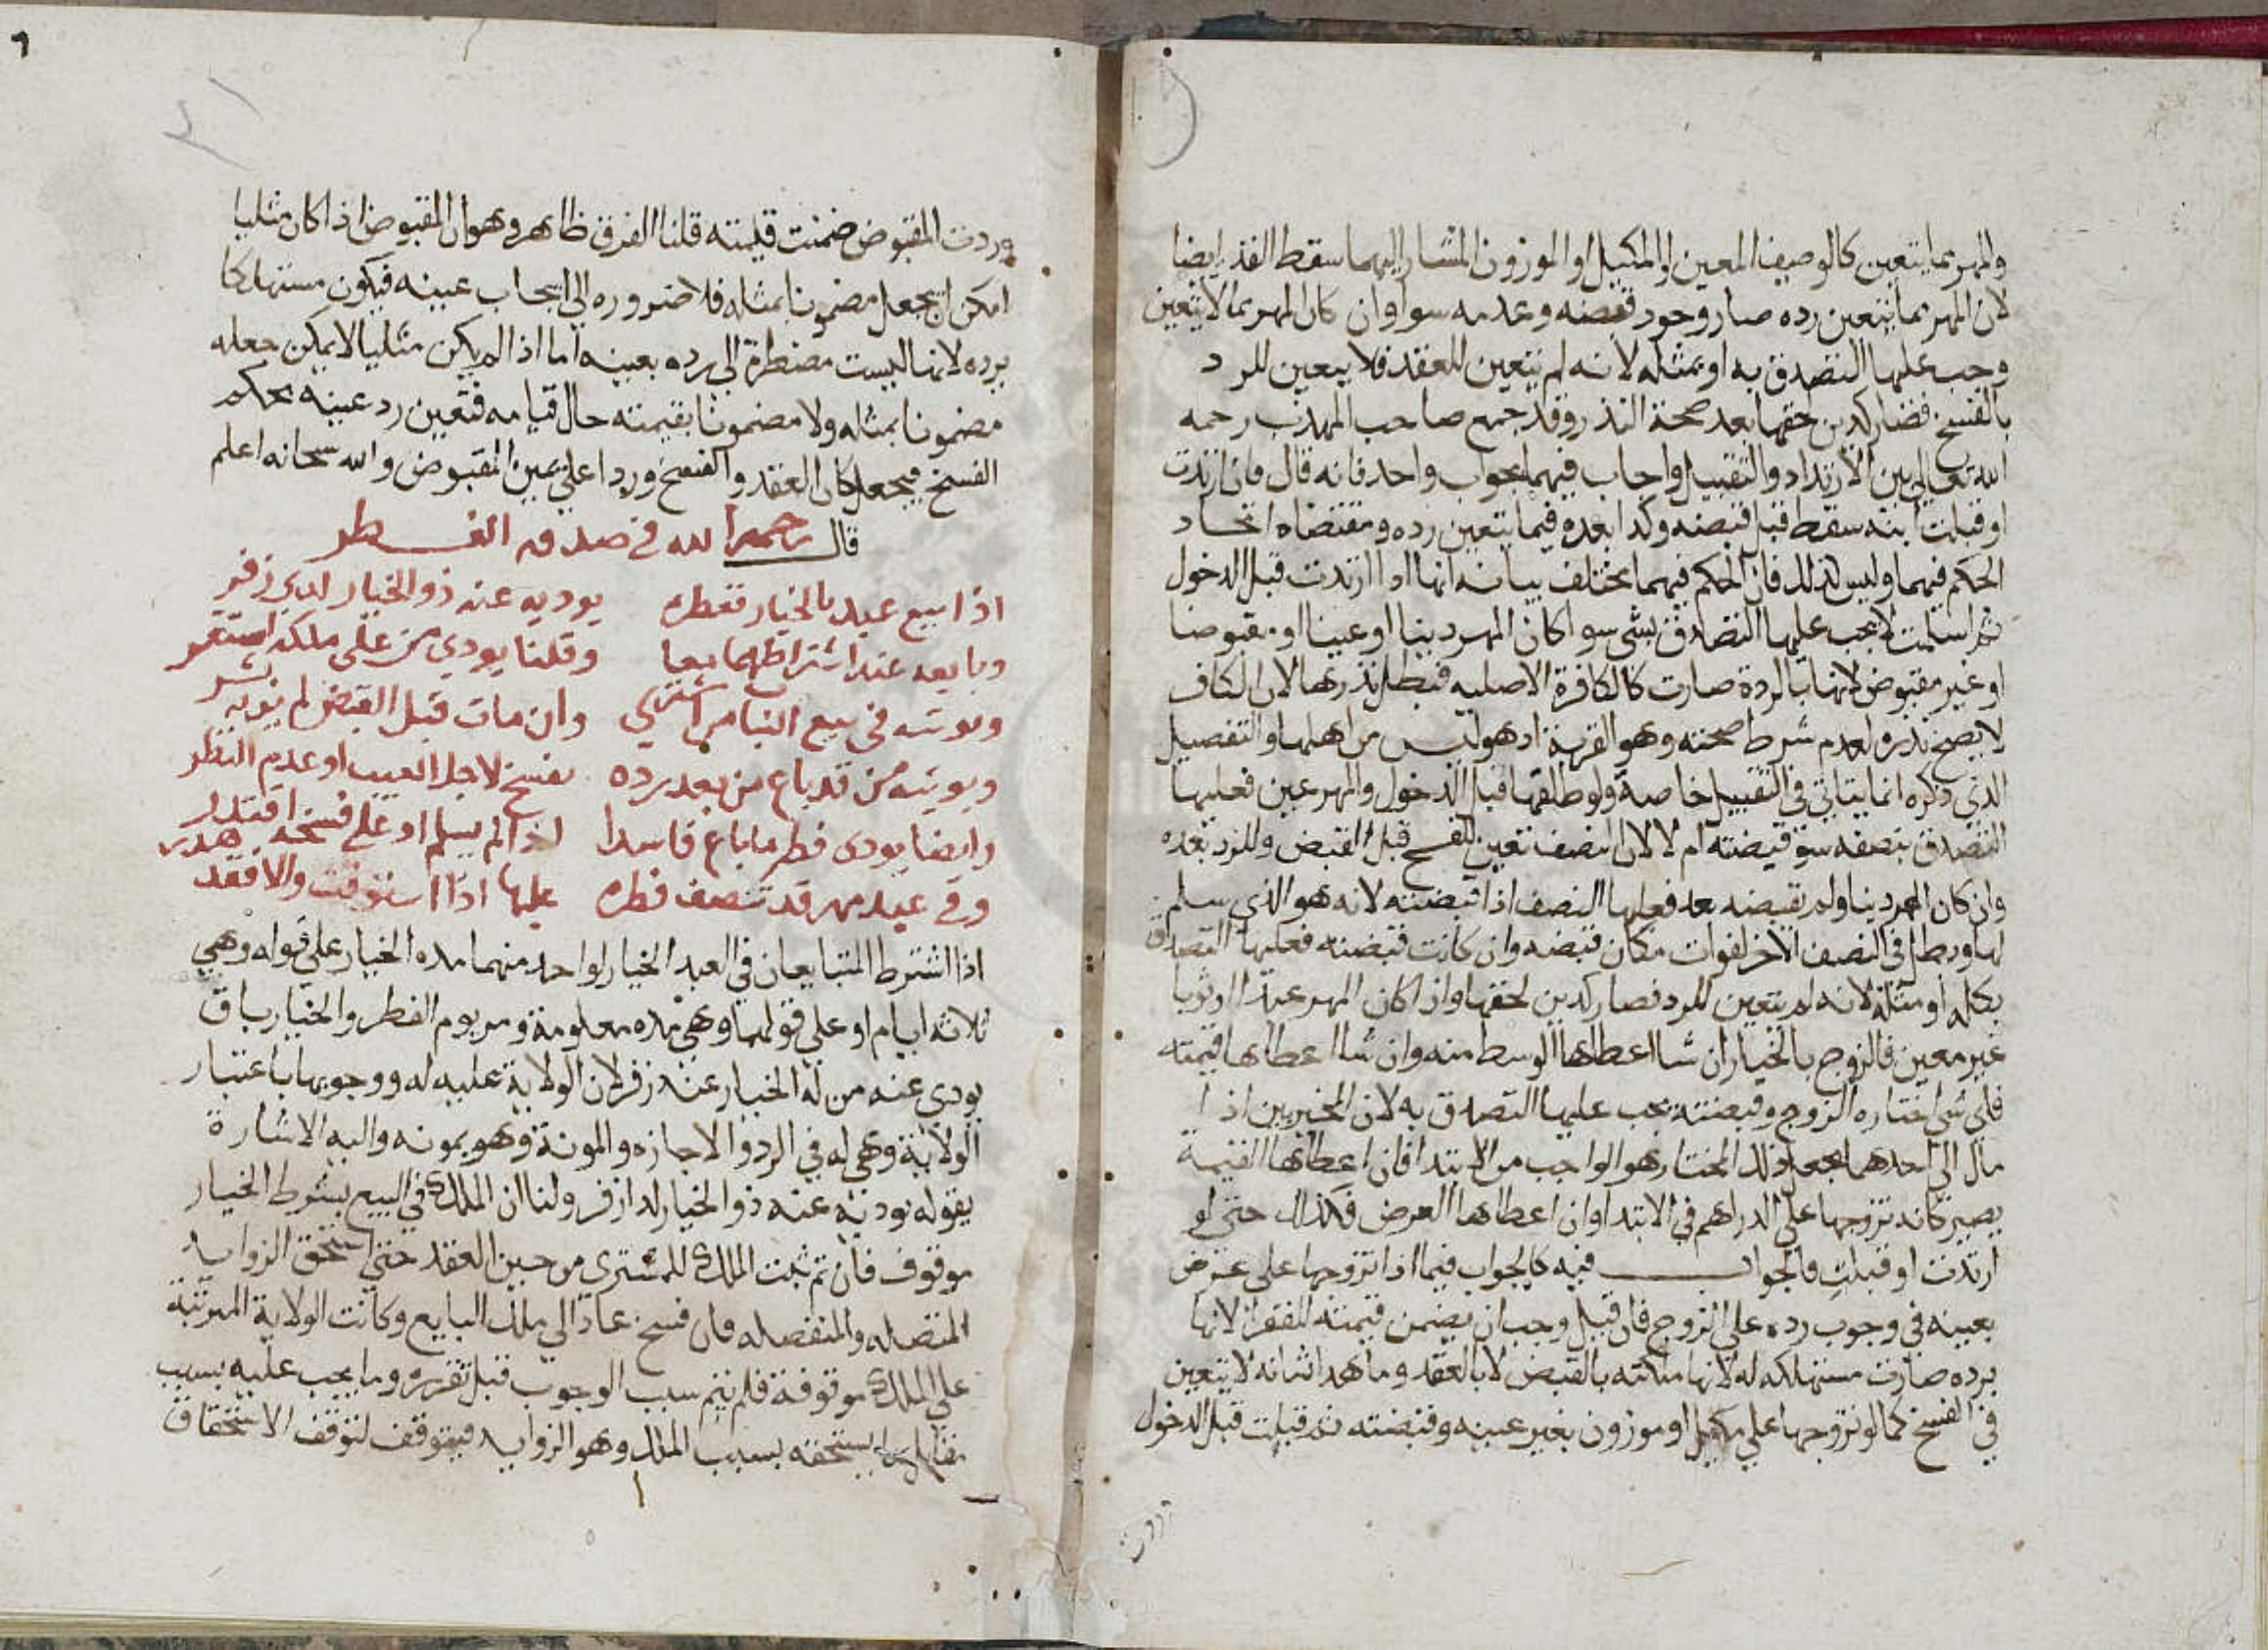 والمهر مما يتعين كالوصيف المعين او المكيل او الموزون المشار اليهما سقط النذر ايضا
لان المهر مما يتعين رده صار وجود قبضه وعدمه سوا وان كان المهر مما لا يتعين
وجب عليها التصدق به او بمثله لانه لم يتعين للعقد فلا يتعين للرد
بالفسخ فصار كدين حقها بعد صحة النذر وقد جمع صاحب المهذب رحمه
الله تعالى بين الارتداد والتقبيل واجاب فيهما بجواب واحد فانه قال فان ارتدت
او قبلت ابنه سقط قبل قبضه وكذا بعده فيما يتعين رده ومقتضاه اتحاد
الحكم فيهما وليس كذلك فان الحكم فيهما مختلف بيانه انها اذا ارتدت قبل الدخول
ثم اسلمت لا يجب عليها التصدق بشي سوا كان المهر دينا او عينا او مقبوضا
او غير مقبوض لانها بالردة صارت كالكافرة الاصليه فبطل نذرها لان الكافر
لا يصح نذره لعدم شرط صحته وهو القربة اذ هو ليس من اهلها والتفصيل
الذي ذكره انما يتاتى في التقبيل خاصة ولو طلقها قبل الدخول والمهر عين فعليها
التصدق بنصفه سوا قبضته ام لا لان النصف تعين للفسخ قبل القبض وللرد بعده
وان كان المهر دينا ولم تقبضه بعد فعليها النصف اذا قبضته لانه هو الذي سلم
لها وبطل في النصف الاخر لفوات مكان قبضه وان كانت قبضته فعليها التصدق
بكله او مثله لانه لم يتعين للرد فصار كدين لحقها وان كان المهر عبدا او ثوبا
غير معين فالزوج بالخيار ان شا اعطاها الوسط منه وان شا اعطاها قيمته
فاي شي اختاره الزوج وقبضته يجب عليها التصدق به لان المخير بين اذا
مال الى احدهما يجعل ذلك المختار هو الواجب من الابتدا فان اعطاها القيمة
يصير كانه تزوجها على الدراهم في الابتدا وان اعطاها العرض فكذلك حتى لو
ارتدت او قبلت فالجواب فيه كالجواب فيما اذا تزوجها على عرض
بعينه في وجوب رده على الزوج فان قيل وجب ان يضمن قيمته للفقرا لانها
برده صارت مستهلكه له لانها ملكته بالقبض لا بالعقد وما هذا شانه لا يتعين
في الفسخ كما لو تزوجها على مكيل او موزون بغير عينه وقبضته ثم قبلت قبل الدخول
وردت
وردت المقبوض ضمنت قيمته قلنا الفرق ظاهر وهو ان المقبوض اذا كان مثليا
امكن ان يجعل مضمونا بمثله فلا ضروره الى ايجاب عينه فيكون مستهلكا
برده لانها ليست مضطرة الى رده بعينه اما اذا لم يكن مثليا لا يمكن جعله
مضمونا بمثله ولا مضمونا بقيمته حال قيامه فتعين رد عينه بحكم
الفسخ فيجعل كان العقد والفسخ وردا على عين المقبوض والله سبحانه اعلم
قال رحمه الله في صدقه الفطر
اذا بيع عبد بالخيار ففطره يوديه عنه ذو الخيار لدى زفر
وبايعه عند اشتراطهما معا وقلنا يودي من على ملكه استقر
ويوتيه في بيع البتا من اشتري وان مات قبل القبض لم يوته بشر
ويوتيه من قد باع من بعد رده بفسخ لاجل العيب او عدم النظر
وايضا يودى فطر ما باع فاسدا اذا لم يسلم او على فسخه اقتدر
وفي عبد مهر قد تنصف فطره عليها اذا استوفت والا فقد هدر
اذا اشترط المتبايعان في العبد الخيار لواحد منهما مده الخيار على قوله وهي
ثلاثه ايام او على قولهما وهي مده معلومة ومر يوم الفطر والخيار باق
يودي عنه من له الخيار عند زفر لان الولاية عليه له ووجوبها باعتبار
الولاية وهي له في الرد والاجازه والمونة وهو يمونه واليه الاشارة
بقوله يوديه عنه ذو الخيار لدا زفر ولنا ان الملك في البيع بشرط الخيار
موقوف فان تم ثبت الملك للمشتري من حين العقد حتى استحق الزوايد
المتصله والمنفصله فان فسخ عاد الى ملك البايع وكانت الولاية المرتبة
على الملك موقوفة فلم يتم سبب الوجوب قبل تقرره وما يجب عليه بسبب
مقابل لما يستحقه بسبب الملك وهو الزوايد فيتوقف لتوقف الاستحقاق